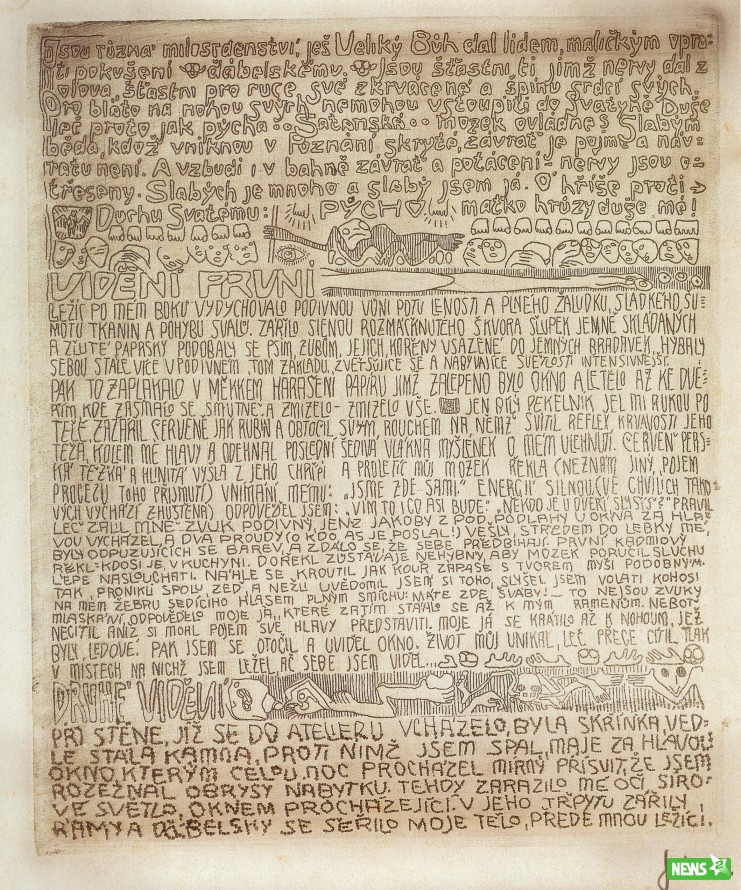 Jsou různá milosrdenství, jež Veliký Bůh dal lidem, maličkým opro-
ti pokušení ďábelskému. Jsou šťastni ti jimž nervy dal z
olova, šťastni pro ruce své zkrvácené a špínu srdcí svých.
Pro bláto na nohou svých nemohou vstoupiti do Svatyně Duše
leč proto, jak pýcha Satanská mozek ovládne Slabým
běda, kdož vniknou v Poznání skryté, závrať je pojme a náv-
ratu není. A vzbudí i v bahně závrať a potácení- nervy jsou o-
třeseny. Slabých je mnoho a slabý jsem já. Ó hříše proti
Duchu Svatému: PÝCHO matko hrůzy duše mé!
VIDĚNÍ PRVNÍ
LEŽÍC PO MÉM BOKU VYDYCHOVALO PODIVNOU VŮNI POTU LENOSTI A PLNÉHO ŽALUDKU, SLADKÉHO SU=
MOTU TKANIN A POHYBU SVALŮ. ZÁŘILO SIENOU ROZMÁČKNUTÉHO ŠKVORA SLUPEK JEMNĚ SKLÁDANÝCH
A ŽLUTÉ PAPRSKY PODOBALY SE PSÍM ZUBŮM, JEJICH KOŘENY VSAZENÉ DO JEMNÝCH BRADAVEK, HÝBALY
SEBOU STÁLE VÍCE V PODIVNÉM TOM ZÁKLADU, ZVĚTŠUJÍCE SE A NABÝVAJÍCE SVĚTLOSTI INTENSIVNĚJŠÍ.
PAK TO ZAPLAKALO V MĚKKÉM HARAŠENÍ PAPÍRU JÍMŽ ZALEPENO BYLO OKNO A LETĚLO AŽ KE DVE=
ŘÍM KDE ZASMÁLO SE SMUTNĚ A ZMIZELO- ZMIZELO VŠE. JEN BÍLÝ PEKELNÍK JEL MI RUKOU PO
TĚLE, ZAZÁŘIL ČERVENĚ JAK RUBÍN A OBTOČIL SVÝM ROUCHEM NA NĚMŽ SVÍTIL REFLEX, KRVAVOSTI JEHO
TĚŽA, KOLEM MÉ HLAVY A ODEHNAL POSLEDNÍ ŠEDIVÁ VLÁKNA MYŠLÉNEK O MÉM ULEHNUTÍ. ČERVEŇ PERS=
KÁ TĚŽKÁ A HLINITÁ VYŠLA Z JEHO CHŘÍPÍ A PROLÉTLA MŮJ MOZEK ŘEKLA (NEZNÁM JINÝ POJEM
PROCESU TOHO PŘIJMUTÍ) VNÍMÁNÍ MÉMU: „JSME ZDE SAMI.“ ENERGIÍ SILNOU, (VE CHVÍLÍCH TAKO-
VÝCH VYCHÁZÍ ZHUŠTĚNÁ) ODPOVĚDĚL JSEM: „VÍM TO I CO ASI BUDE“ „NĚKDO JE U DVEŘÍ, SLYŠÍŠ?“ PRAVIL
LEČ ZAUJAL MNE ZVUK PODIVNÝ JENŽ JAKOBY Z POD PODLAHY U OKNA ZA HLA=
VOU VYCHÁZEL, A DVA PROUDY (O KDO AS JE POSLAL!) VEŠLY STŘEDEM DO LEBKY MÉ,
BYLY ODPUZUJÍCÍCH SE BAREV, A ZDÁLO SE ŽE SEBE PŘEDBÍHAJÍ. PRVNÍ KADMIOVÝ
ŘEKL- KDOSI JE V KUCHYNI. DOŘEKL ZŮSTÁVAJE NEHYBNÝ, ABY MOZEK PORUČIL SLUCHU
LÉPE NASLOUCHATI. NÁHLE SE KROUTIL JAK KOUŘ ZÁPASE S TVOREM MYŠI PODOBNÝM.
TAK PRONIKLI SPOLU ZEĎ A NEŽLI UVĚDOMIL JSEM SI TOHO, SLYŠEL JSEM VOLATI KOHOSI
NA MÉM ŽEBRU SEDÍCÍHO HLASEM PLNÝM SMÍCHU: MÁTE ZDE ŠVÁBY!— TO NEJSOU ZVUKY
MLASKÁNÍ, ODPOVĚDĚLO MOJE JÁ, KTERÉ ZATÍM STÁHLO SE AŽ K MÝM RAMENŮM. NEBOŤ
NECÍTIL ANIŽ SI MOHL POJEM SVÉ HLAVY PŘEDSTAVITI. MOJE JÁ SE KRÁTILO AŽ K NOHOUM, JEŽ
BYLY LEDOVÉ. PAK JSEM SE OTOČIL A UVIDĚL OKNO. ŽIVOT MŮJ UNIKAL, LEČ PŘECE CÍTIL TLAK
V MÍSTECH NA NICHŽ JSEM LEŽEL, AČ SEBE JSEM VIDĚL...
DRUHÉ VIDĚNÍ
PŘI STĚNĚ, JÍŽ SE DO ATELIERU VCHÁZELO, BYLA SKŘÍNKA, VED=
LE STÁLA KAMNA, PROTI NIMŽ JSEM SPAL, MAJE ZA HLAVOU
OKNO, KTERÝM CELOU NOC PROCHÁZEL MÍRNÝ PŘÍSVIT, ŽE JSEM
ROZEZNAL OBRYSY NÁBYTKU. TEHDY ZARAZILO MÉ OČI, SIRO-
VÉ SVĚTLO, OKNEM PROCHÁZEJÍCÍ. V JEHO TŘPYTU ZÁŘILY
RÁMY A ĎÁBELSKY SE ŠEŘILO MOJE TĚLO, PŘEDE MNOU LEŽÍCÍ.
NEWS 2